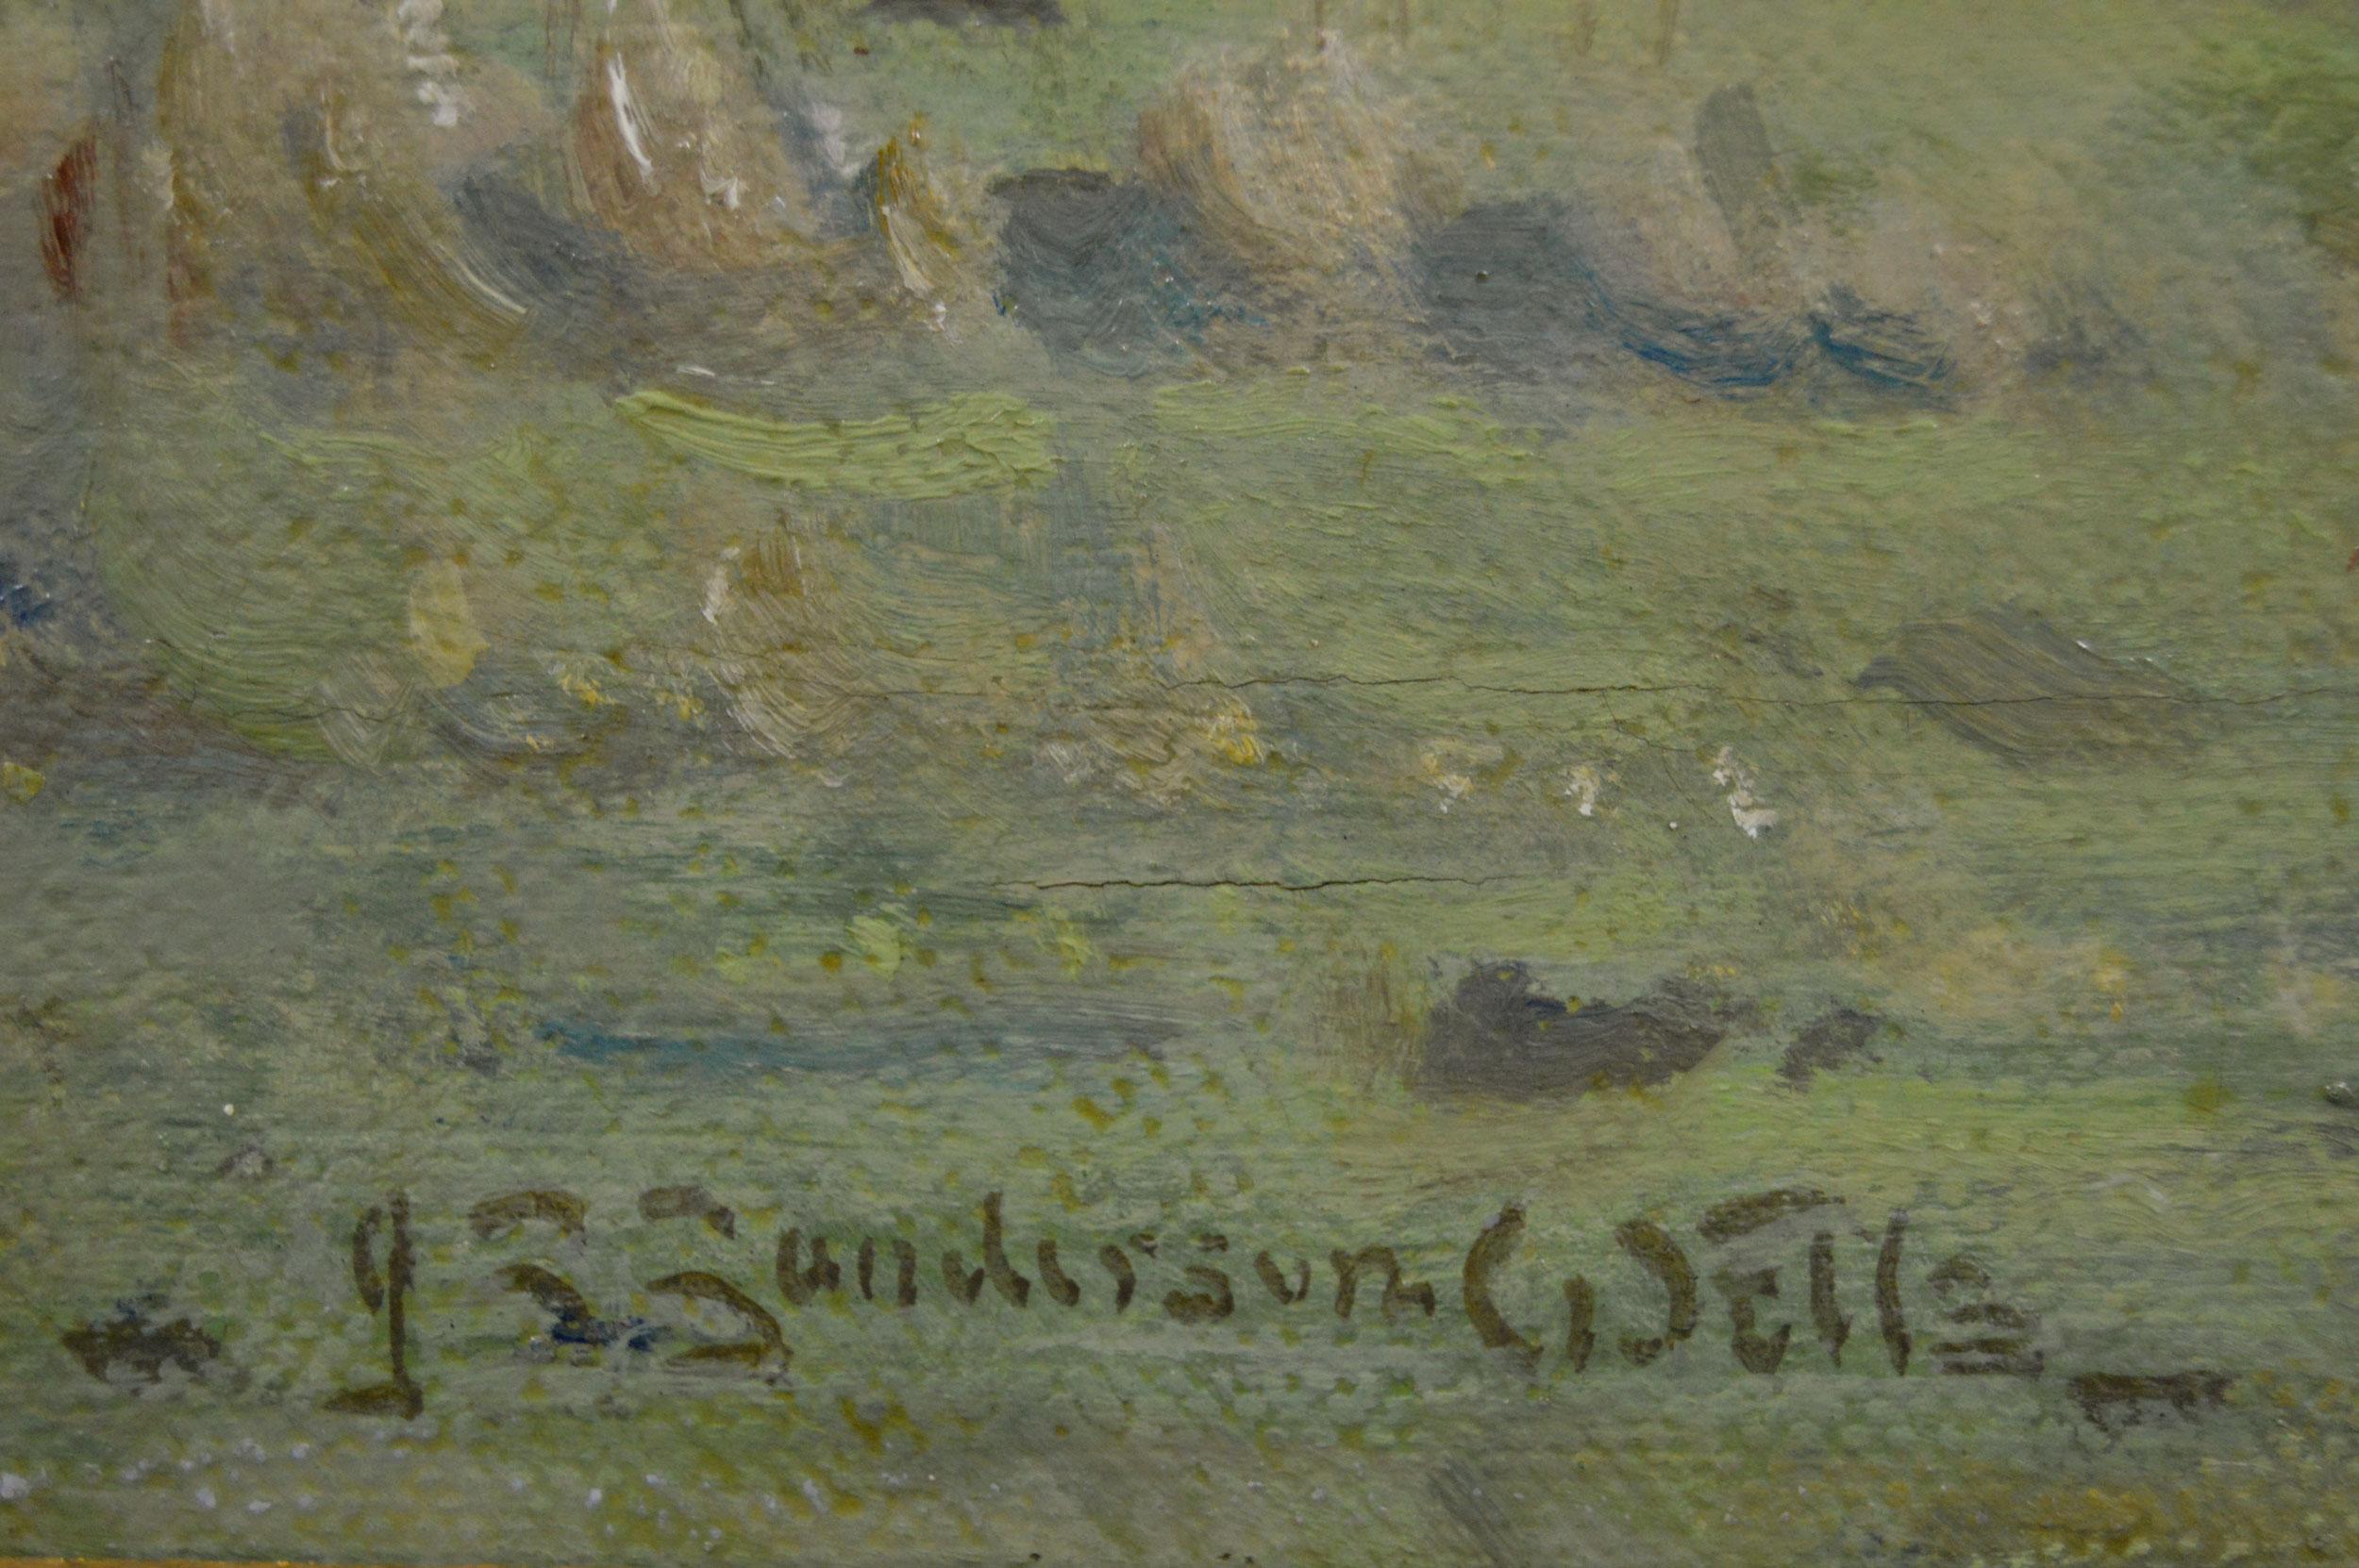 J S Sanderson Wells